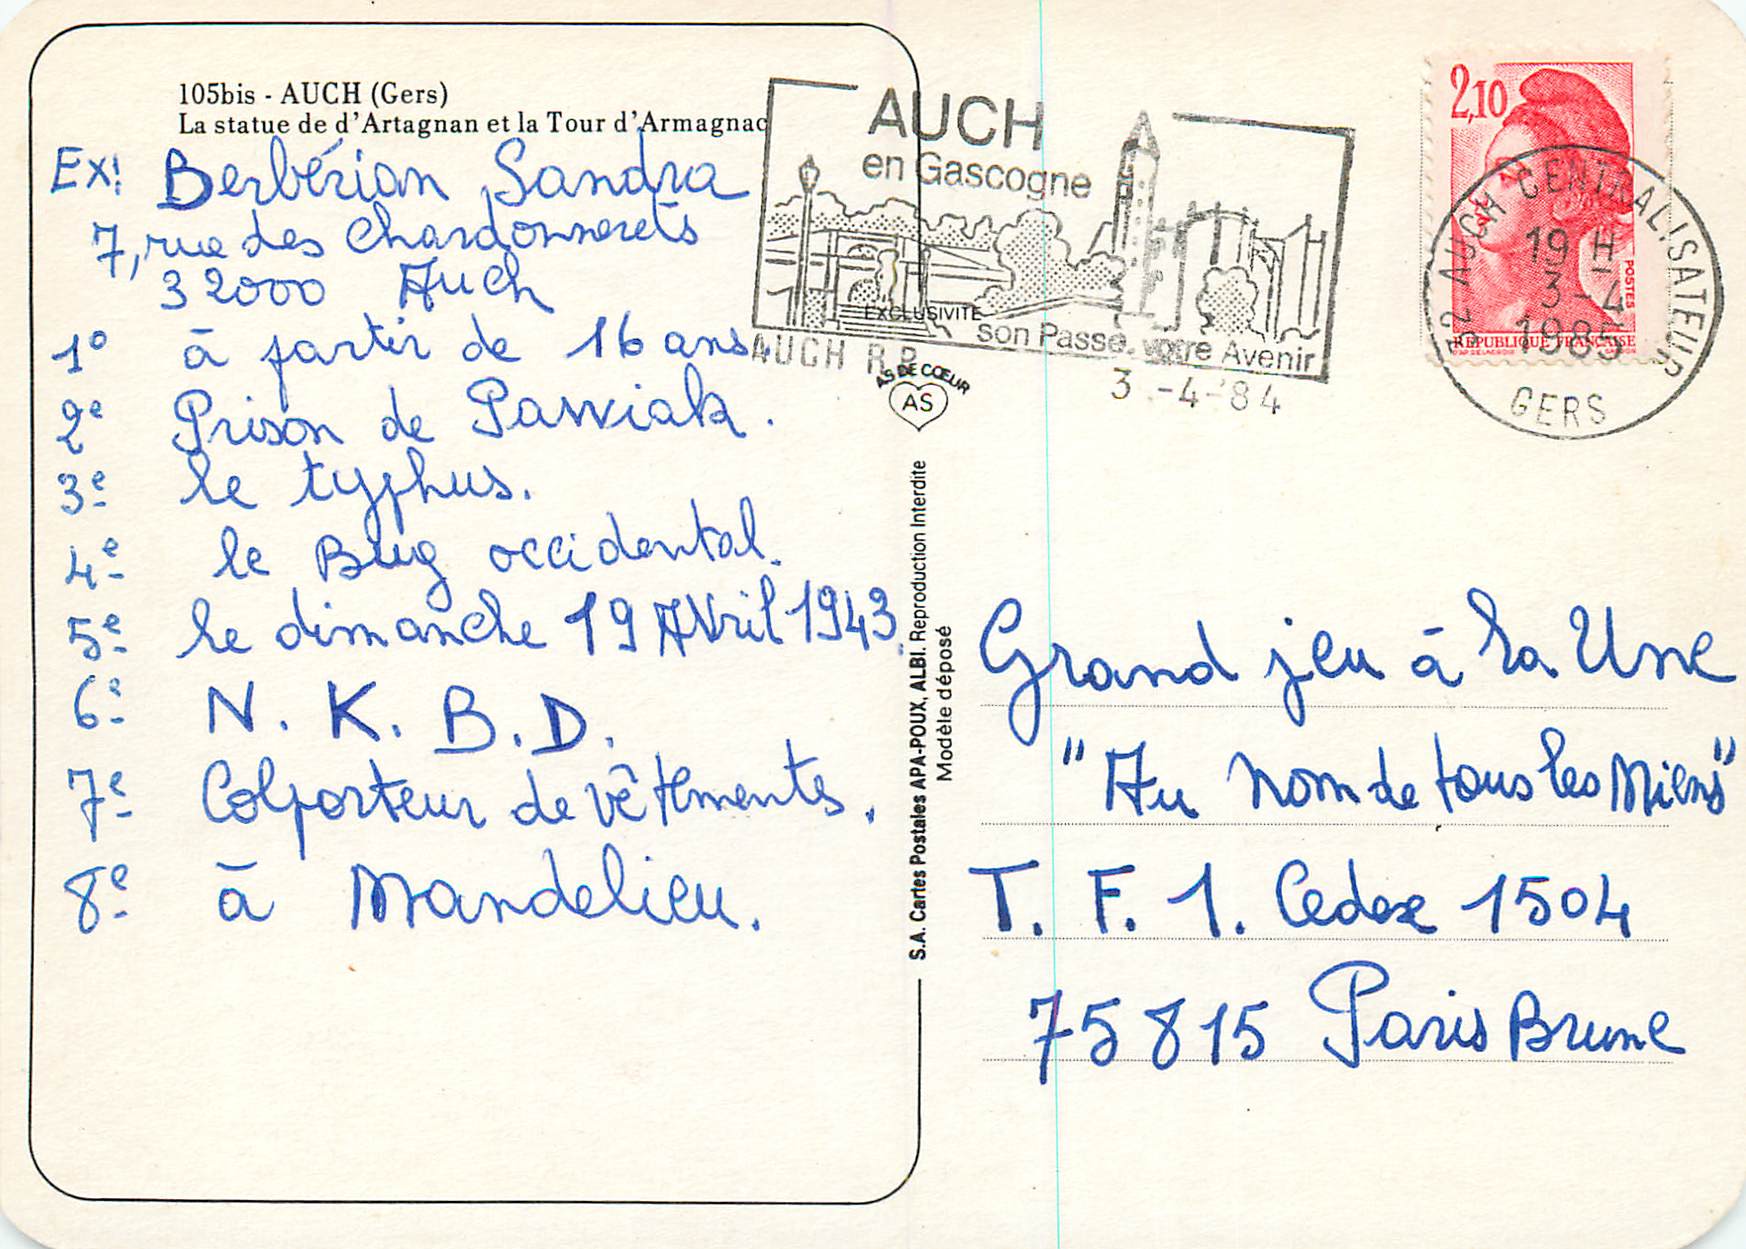 105bis - AUCH (Gers)
La statue de d'Artagnan et la Tour d'Armagnac
Ex: Berbérian Sandra
7, rue des Chardonnerets
32000 Auch
1° à partir de 16 ans
2e Prison de Pawiak.
3e le typhus.
4e le Bug occidental.
5e le dimanche 19 Avril 1943.
6e N. K. B. D.
7e Colporteur de vêtements.
8e à Mandelieu.
AUCH
en Gascogne
son Passé, votre Avenir
AUCH R.P.
3 -4-84
EXCLUSIVITE
AS DE CŒUR
AS
S.A. Cartes Postales APA-POUX, ALBI. Reproduction Interdite
Modèle déposé
2,10
POSTES
REPUBLIQUE FRANÇAISE
32 AUCH CENTRALISATEUR
19 H
3-4
1985
GERS
Grand jeu à la Une
"Au nom de tous les Miens"
T. F. 1. Cedex 1504
75815 Paris Brune